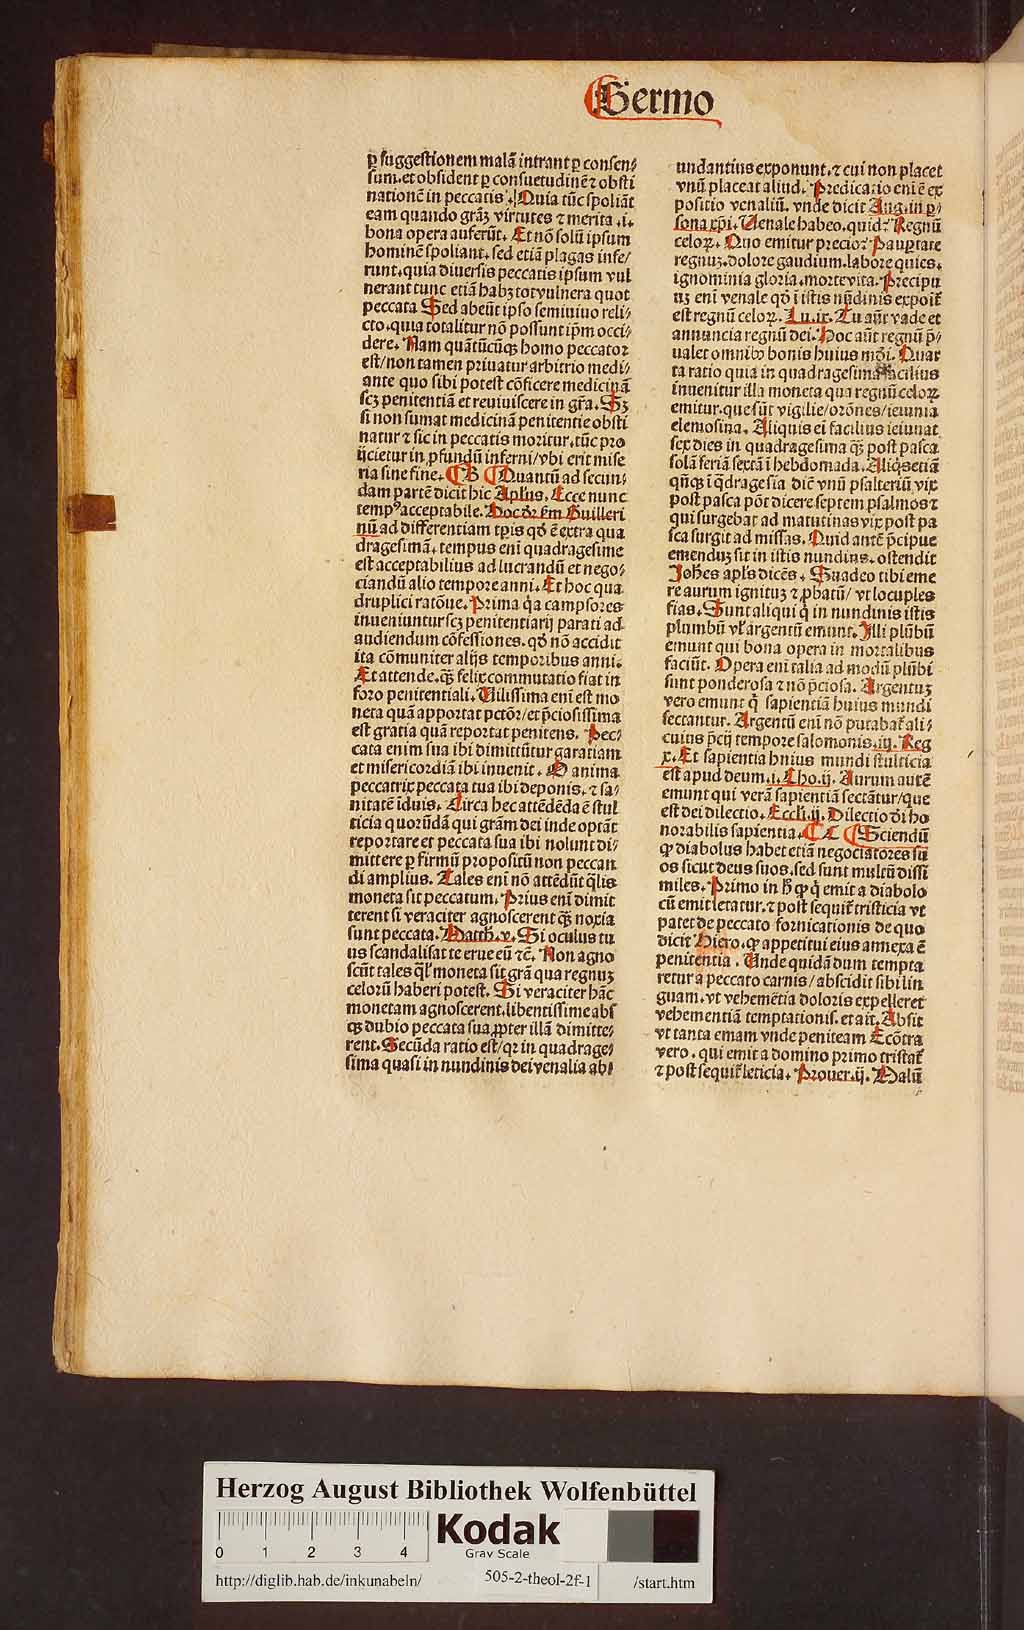 Sermo
ꝑ suggestionem malā intrant ꝑ consen⸗
sum.et obsident ꝑ consuetudinē ⁊ obsti
nationē in peccatis. Quia tūc spoliāt
eam quando grāꝫ virtutes ⁊ merita .i.
bona opera auferūt. Et nō solū ipsum
hominē spoliant. sed etiā plagas infe/
runt.quia diuersis peccatis ipsum vul
nerant tunc etiā habꝫ tot vulnera quot
peccata Sed abeūt ipso semiuiuo reli⸗
cto.quia totalitur nō possunt ip̄m occi⸗
dere. Nam quātūcūqꝫ homo peccator
est/non tamen priuatur arbitrio medi⸗
ante quo sibi potest cōficere medicinā
scꝫ penitentiā et reuiuiscere in gr̄a. Sꝫ
si non sumat medicinā penitentie obsti
natur ⁊ sic in peccatis moritur.tūc pro
ijcietur in ꝓfundū inferni/vbi erit mise
ria sine fine. B Quantū ad secun⸗
dam partē dicit hic Apl'us. Ecce nunc
tempꝰ acceptabile. Hoc dr̄ km̄ Guilleri
nū ad differentiam tp̄is qd̄ ē extra qua
dragesimā. tempus eni quadragesime
est acceptabilius ad lucrandū et nego⸗
ciandū alio tempore anni. Et hoc qua
druplici ratōne. Prima q̄a campsores
inueniuntur scꝫ penitentiarij parati ad
audiendum cōfessiones. qd̄ nō accidit
ita cōmuniter alijs temporibus anni.
Et attende. qꝫ felix commutatio fiat in
foro penitentiali. Vilissima eni est mo
neta quā apportat pctōr/et p̄ciosissima
est gratia quā reportat penitens. Pec⸗
cata enim sua ibi dimittūtur garatiam
et misericordiā ibi inuenit. O anima
peccatrix peccata tua ibi deponis. ⁊ sa⸗
nitatē īduis. Circa hec attēdēda ē stul
ticia quorūdā qui grām dei inde optāt
reportare et peccata sua ibi nolunt di⸗
mittere ꝑ firmū propositū non peccan
di amplius. Tales eni nō attēdūt q̄lis
moneta sit peccatum. Prius eni dimit
terent si veraciter agnoscerent qꝫ noxia
sunt peccata. Matth.v. Si oculus tu
us scandalisat te erue eū ⁊c̄. Non agno
scūt tales q̄l' moneta sit grā qua regnuꝫ
celorū haberi potest. Si veraciter hāc
monetam agnoscerent.libentissime abs
qꝫ dubio peccata sua ꝓpter illā dimitte⸗
rent. Secūda ratio est/qꝛ in quadrage⸗
sima quasi in nundinis dei venalia ab⸗
undantius exponunt.⁊ cui non placet
vnū placeat aliud. Predicatio eni ē ex
positio venaliū. vnde dicit Aug. in ꝑ⸗
sona xp̄i. Venale habeo. quid? Regnū
celoꝝ. Quo emitur precio? Paupertate
regnuꝫ.dolore gaudium.labore quies.
ignominia gloria.morte vita. Precipu
uꝫ eni venale qd̄ ī istis nūdinis expoit̄
est regnū celoꝝ. Lu.ix. Tu aūt vade et
annuncia regnū dei. Hoc aūt regnū p̄⸗
ualet omnibꝰ bonis huius mōi. Quar
ta ratio quia in quadragesima facilius
inuenitur illa moneta qua regnū celoꝝ
emitur.que sūt vigilie/orōnes/ieiunia
elemosina. Aliquis ei facilius ieiunat
sex dies in quadragesima qꝫ post pasca
solā feriā sextā ī hebdomada. Aliq̄s etiā
qn̄qꝫ ī q̄dragesia dic̄ vnū psalteriū vix
post pasca pōt dicere septem psalmos ⁊
qui surgebat ad matutinas vix post pa
sca surgit ad missas. Quid autē p̄cipue
emenduꝫ sit in istis nundinis. ostendit
Joh̄es apl's dicēs. Suadeo tibi eme
re aurum ignituꝫ ⁊ ꝓbatū/ vt locuples
fias. Sunt aliqui q̄ in nundinis istis
plumbū vl' argentū emunt. Illi plūbū
emunt qui bona opera in mortalibus
faciūt. Opera eni talia ad modū plūbi
sunt ponderosa ⁊ nō p̄ciosa. Argentuꝫ
vero emunt q̄ sapientiā huius mundi
sectantur. Argentū eni nō putabat̄ ali⸗
cuius p̄cij tempore salomonis.iij. Reg
x. Et sapientia huius mundi stulticia
est apud deum.i. Cho.ij. Aurum autē
emunt qui verā sapientiā sectātur/que
est dei dilectio. Eccli.ij. Dilectio d̄i ho
norabilis sapientia. C Sciendū
ꝙ diabolus habet etiā negociatores su
os sicut deus suos.sed sunt multū dissi
miles. Primo in h̄ ꝙ q̄ emit a diabolo
cū emit letatur.⁊ post sequit̄ tristicia vt
patet de peccato fornicationis de quo
dicit Hiero. ꝙ appetitui eius annexa ē
penitentia . Vnde quidā dum tempta
retur a peccato carnis/abscidit sibi lin
guam.vt vehemētia doloris expelleret
vehementiā temptationis. et ait. Absit
vt tanta emam vnde peniteam Ecōtra
vero . qui emit a domino primo tristat̄
⁊ post sequit̄ leticia. Prouer.ij. Malū
Herzog August Bibliothek Wolfenbüttel
0 1 2 3 4
Kodak
Gray Scale
http://diglib.hab.de/inkunabeln/
505-2-theol-2f-1
/start.htm